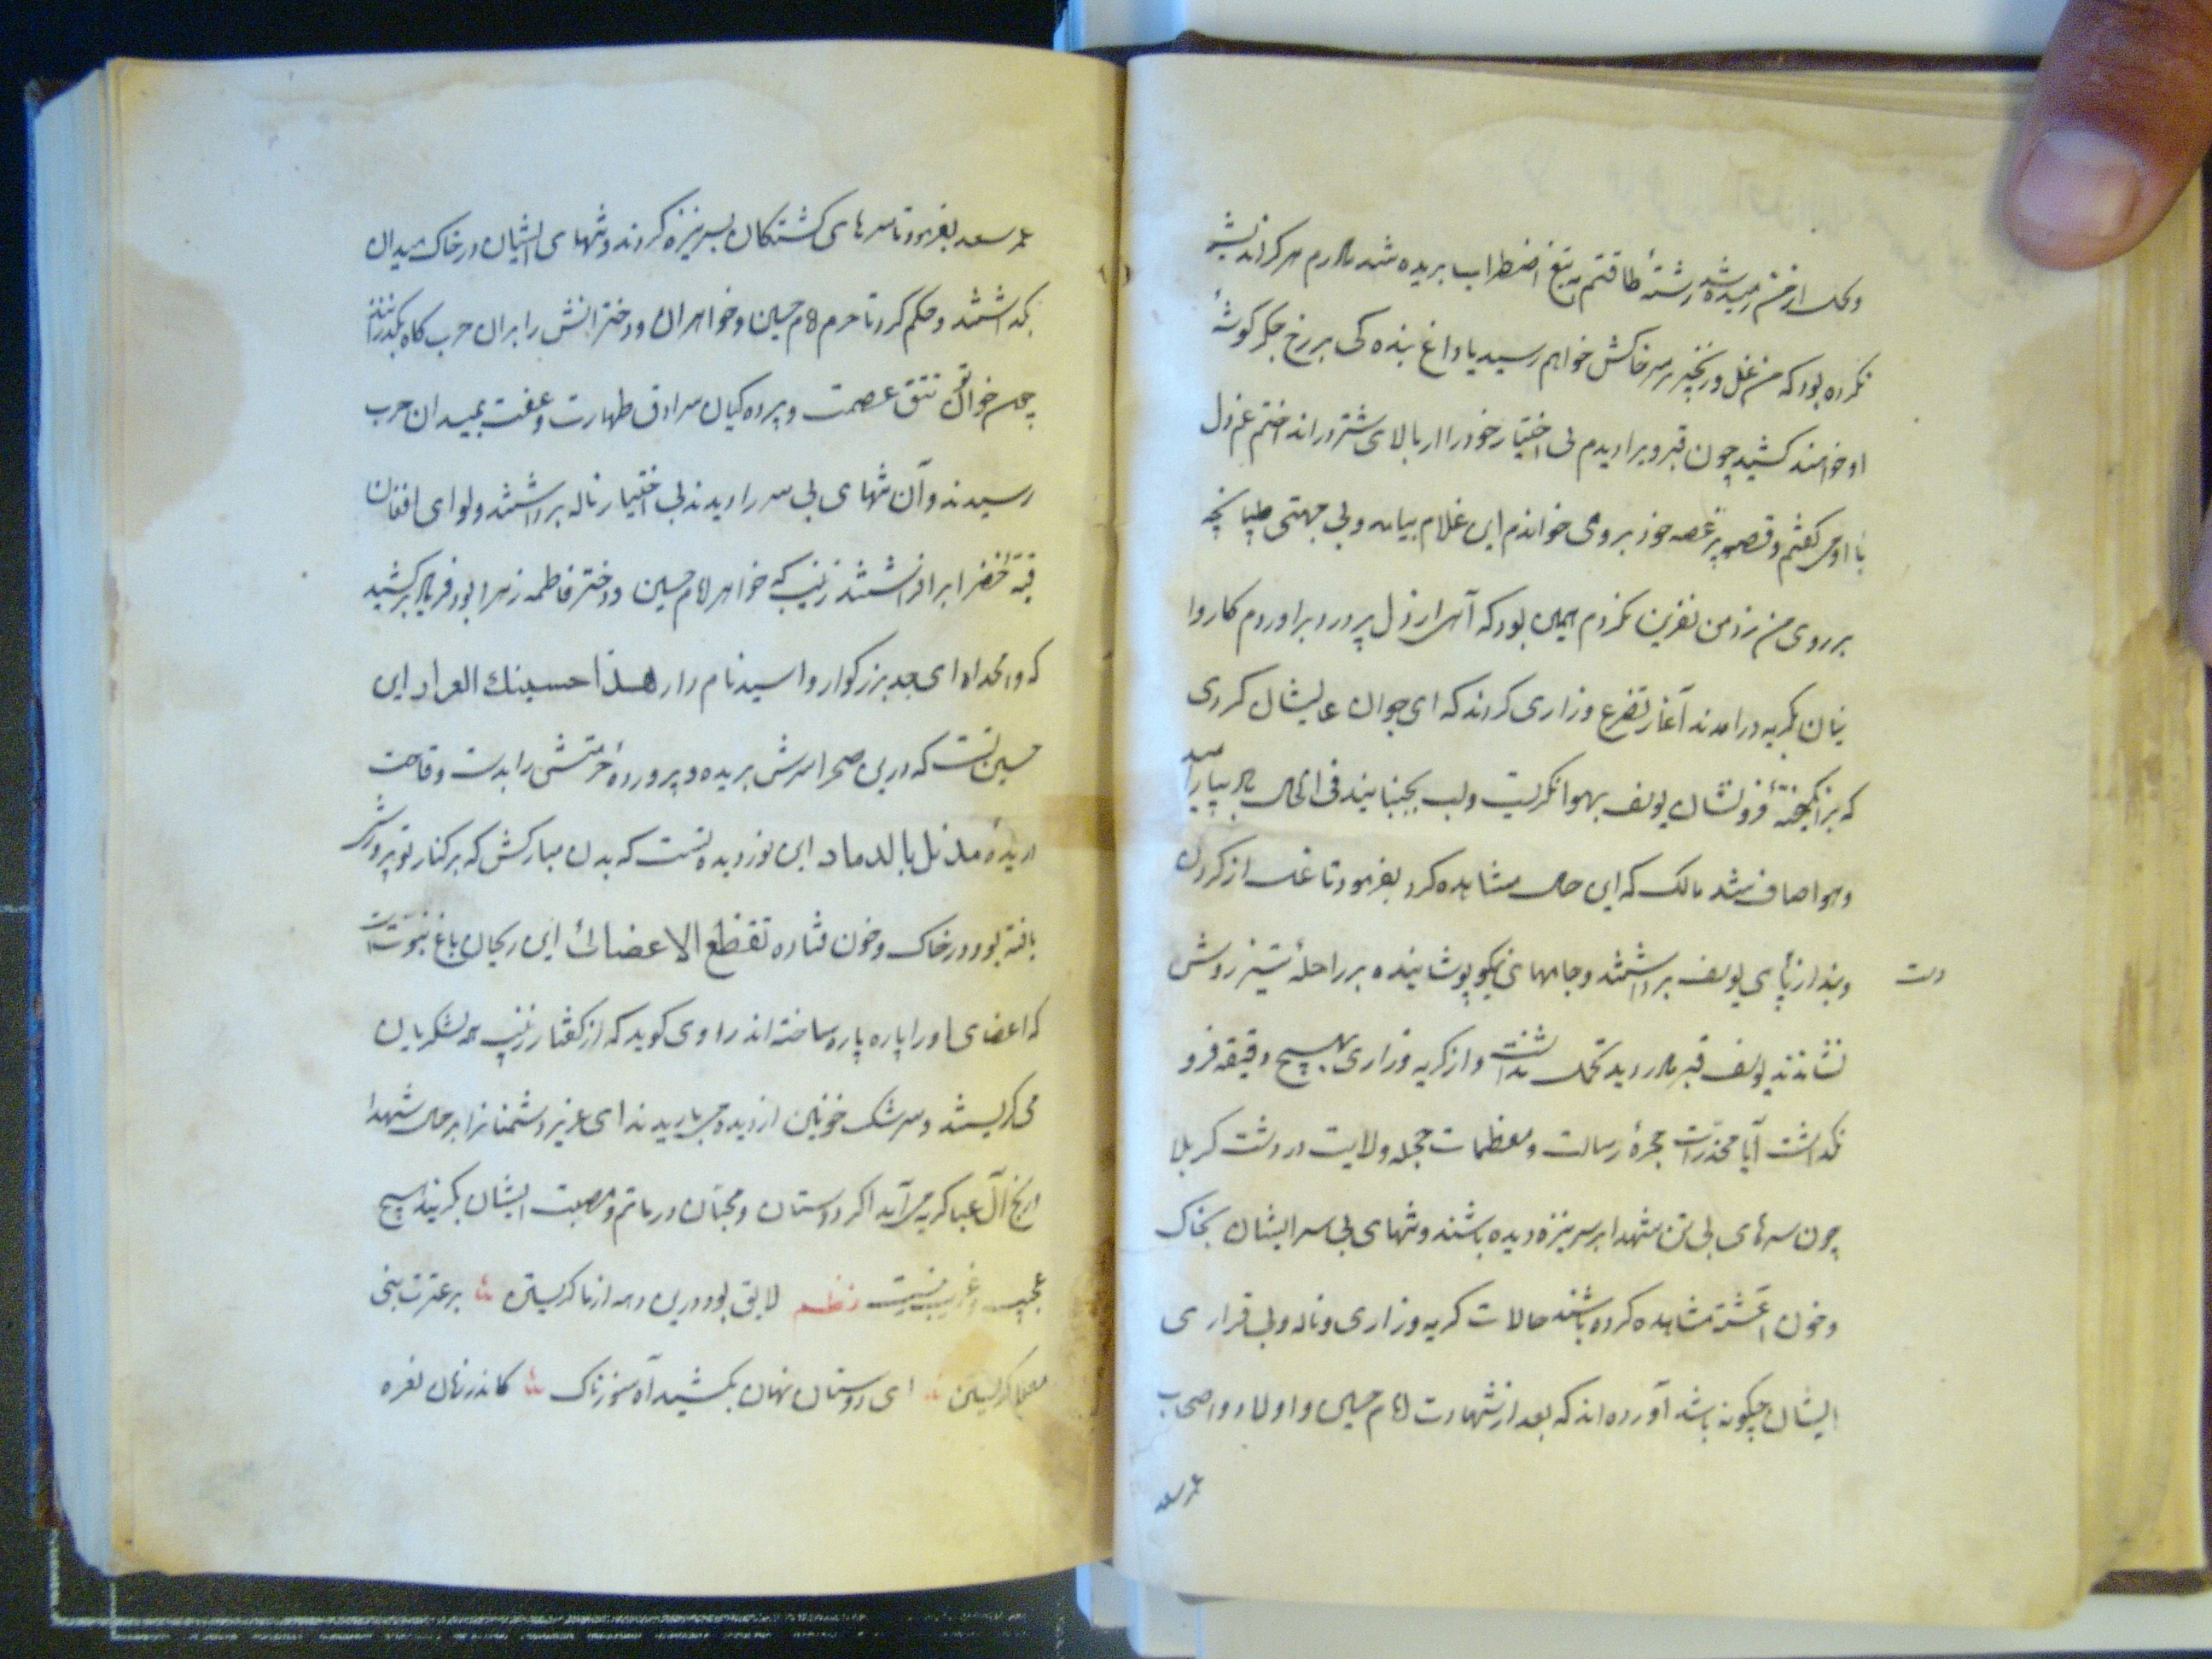 و تحمل از من رمیده شد رشتهٔ طاقتم به تیغ اضطراب بریده شد مادرم هرگز اندیشه
نکرده بود که من غل و زنجیر بر سر خاکش خواهم رسید یا داغ بندهٔ کی بر رخ جکر کوشهٔ
او خواهند کشید چون قبر ویرا دیدم بی اختیار خود را از بالای شتر در انداختم غم دل
با او می کفتم و قصه پر غصه خود برو می خواندم این غلام بیامد و بی جهتی طپانچه
بر روی من زد من نفرین نکردم همین بود که آهی از دل پر درد براوردم کاروا
نیان بگریه درامدند آغاز تضرع و زاری کردند که ای جوان عالیشان کردی
که برانکیختهٔ فرو نشان یوسف بهوا نکریست و لب بجنبانید فی الحال باد بیارامید
و هوا صاف شد مالک که این حال مشاهده کرد بفرمود تا غل از کردن
و بند از پای یوسف برداشتند و جامهای نیکو پوشانیده بر راحلهٔ تیز روش
دست
نشاندند یوسف قبر مادر دید تحمل نداشت و از کریه و زاری بهیچ دقیقه فرو
نکذاشت آیا مخدرات حجرهٔ رسالت و معظمات حجلهٔ ولایت در دشت کربلا
چون سرهای بی تن شهدا بر سر نیزه دیده باشند و تنهای بی سر ایشان بخاک
و خون اغشته مشاهده کرده باشند حالات کریه و زاری و ناله و بی قراری
ایشان چکونه باشد آورده اند که بعد از شهادت امام حسین و اولاد و اصحاب
عمر سعد
عمر سعد بفرمود تا سرهای کشتکان بسر نیزه کردند و تنهای ایشان در خاک میدان
بکذاشتند و حکم کرد تا حرم امام حسین و خواهران و دخترانش را بران حرب کاه بکذرانند
چون خواتین تتق عصمت و پرده کیان سرادق طهارت و عفت بمیدان حرب
رسیدند و آن تنهای بی سر را دیدند بی اختیار ناله برداشتند و لوای افغان
قبهٔ خضرا برافراشتند زینب که خواهر امام حسین و دختر فاطمه زهرا بود فریاد برکشید
که وا محمداه ای جد بزرکوار و ا سید نام دار هذا حسینك العرا این
حسین تست که درین صحرا سرش بریده و پروردهٔ حرمتش را بدست وقاحت
دریده مذنل بالدماء این نور دیده تست که بدن مبارکش که برکنار تو پرورش
یافته بود در خاک و خون فتاده تقطع الاعضائ این ریحان باغ نبوتست
که اعضای او را پاره پاره ساخته اند راوی کوید که از کفتار زینب همه لشکریان
می کریستند و سرشک خونین از دیده می باریدند ای عزیز دشمنانرا بر حال شهدا
و رنج آل عبا کریه می آید اکر دوستان و محبان در ماتم و مصیبت ایشان بکریند هیچ
عجیب و غریب نیست نظم لایق بود درین دهه از ما کریستن بر عترت نبی
معلا کریستن ای دوستان نهان بکشید آه سوزناک کاندر نهان نفره